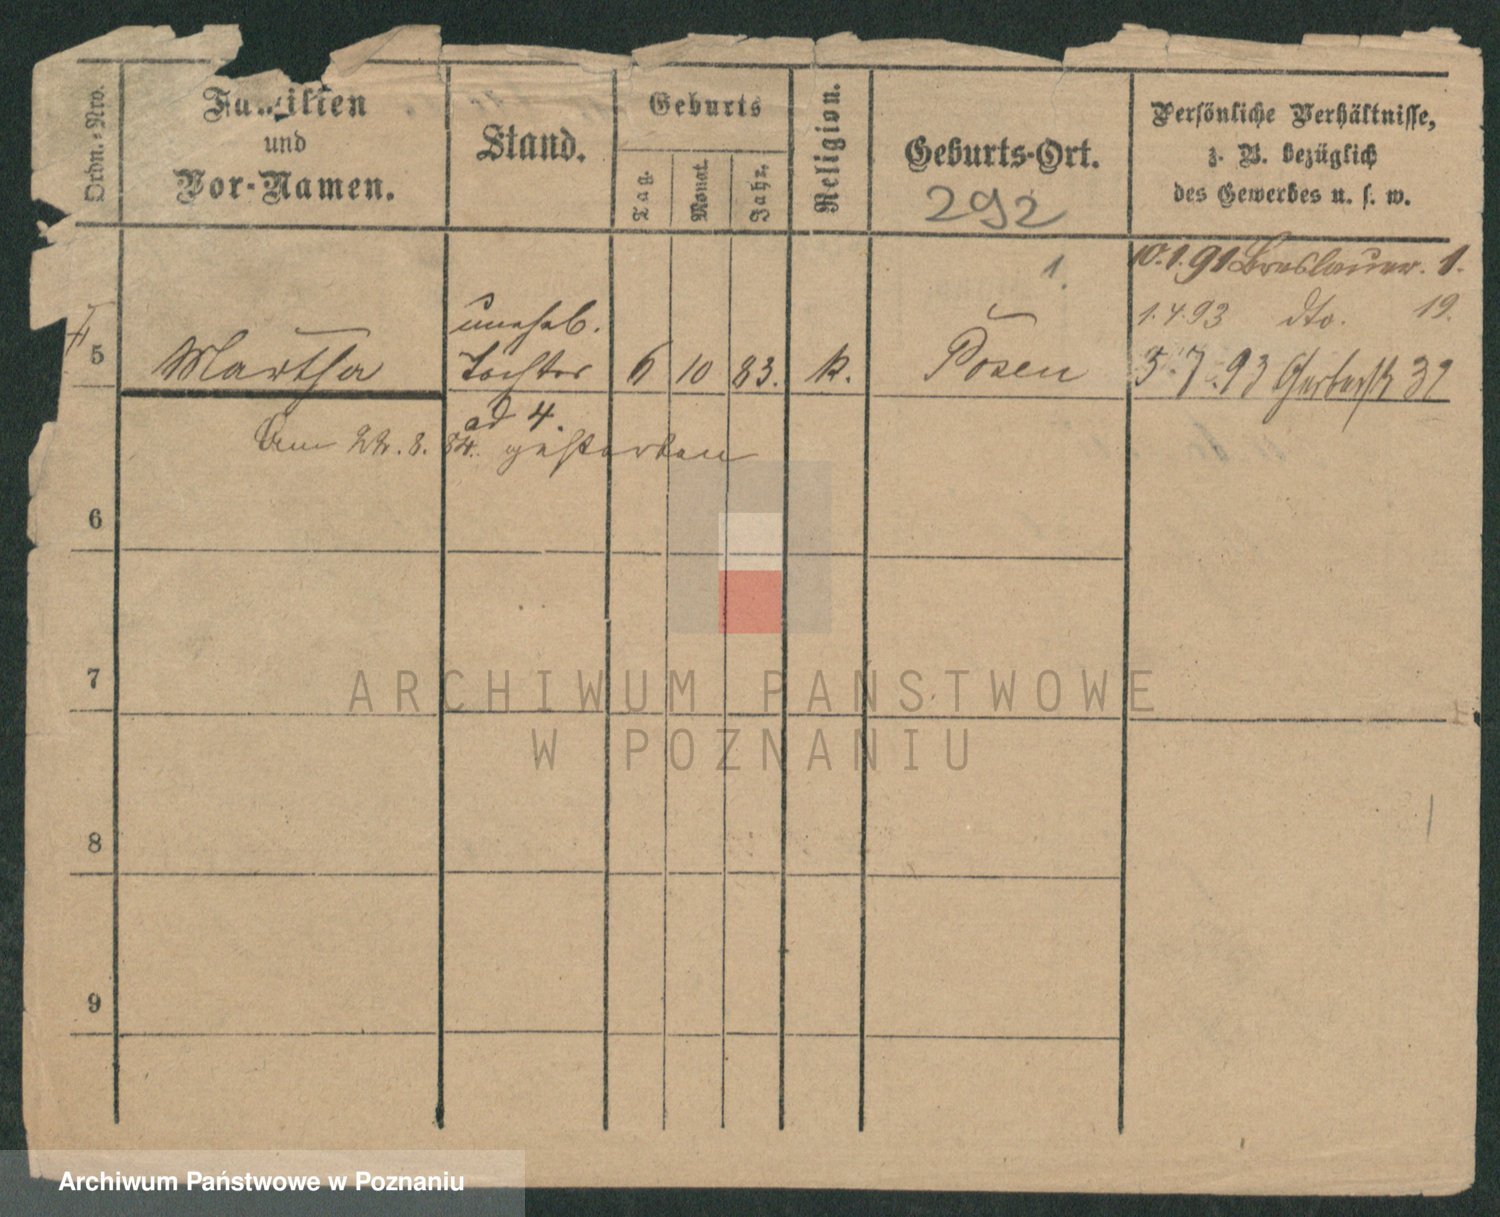 Ordn.-Nro.
Familien
und
Vor-Namen.
Stand.
Geburts
Tag.
Monat.
Jahr.
Religion.
Geburts-Ort.
292
Persönliche Verhältnisse,
z. B. bezüglich
des Gewerbes u. s. w.
1.
10.1.91 Breslauer. 1.
1.4.93 dto. 19.
5 Martha unehel. Tochter 6 10 83. k. Posen
3.7.93 Gerberstr 32
ad 4.
Am 22.8.84. gestorben
6
7
8
9
ARCHIWUM PAŃSTWOWE
W POZNANIU
Archiwum Państwowe w Poznaniu